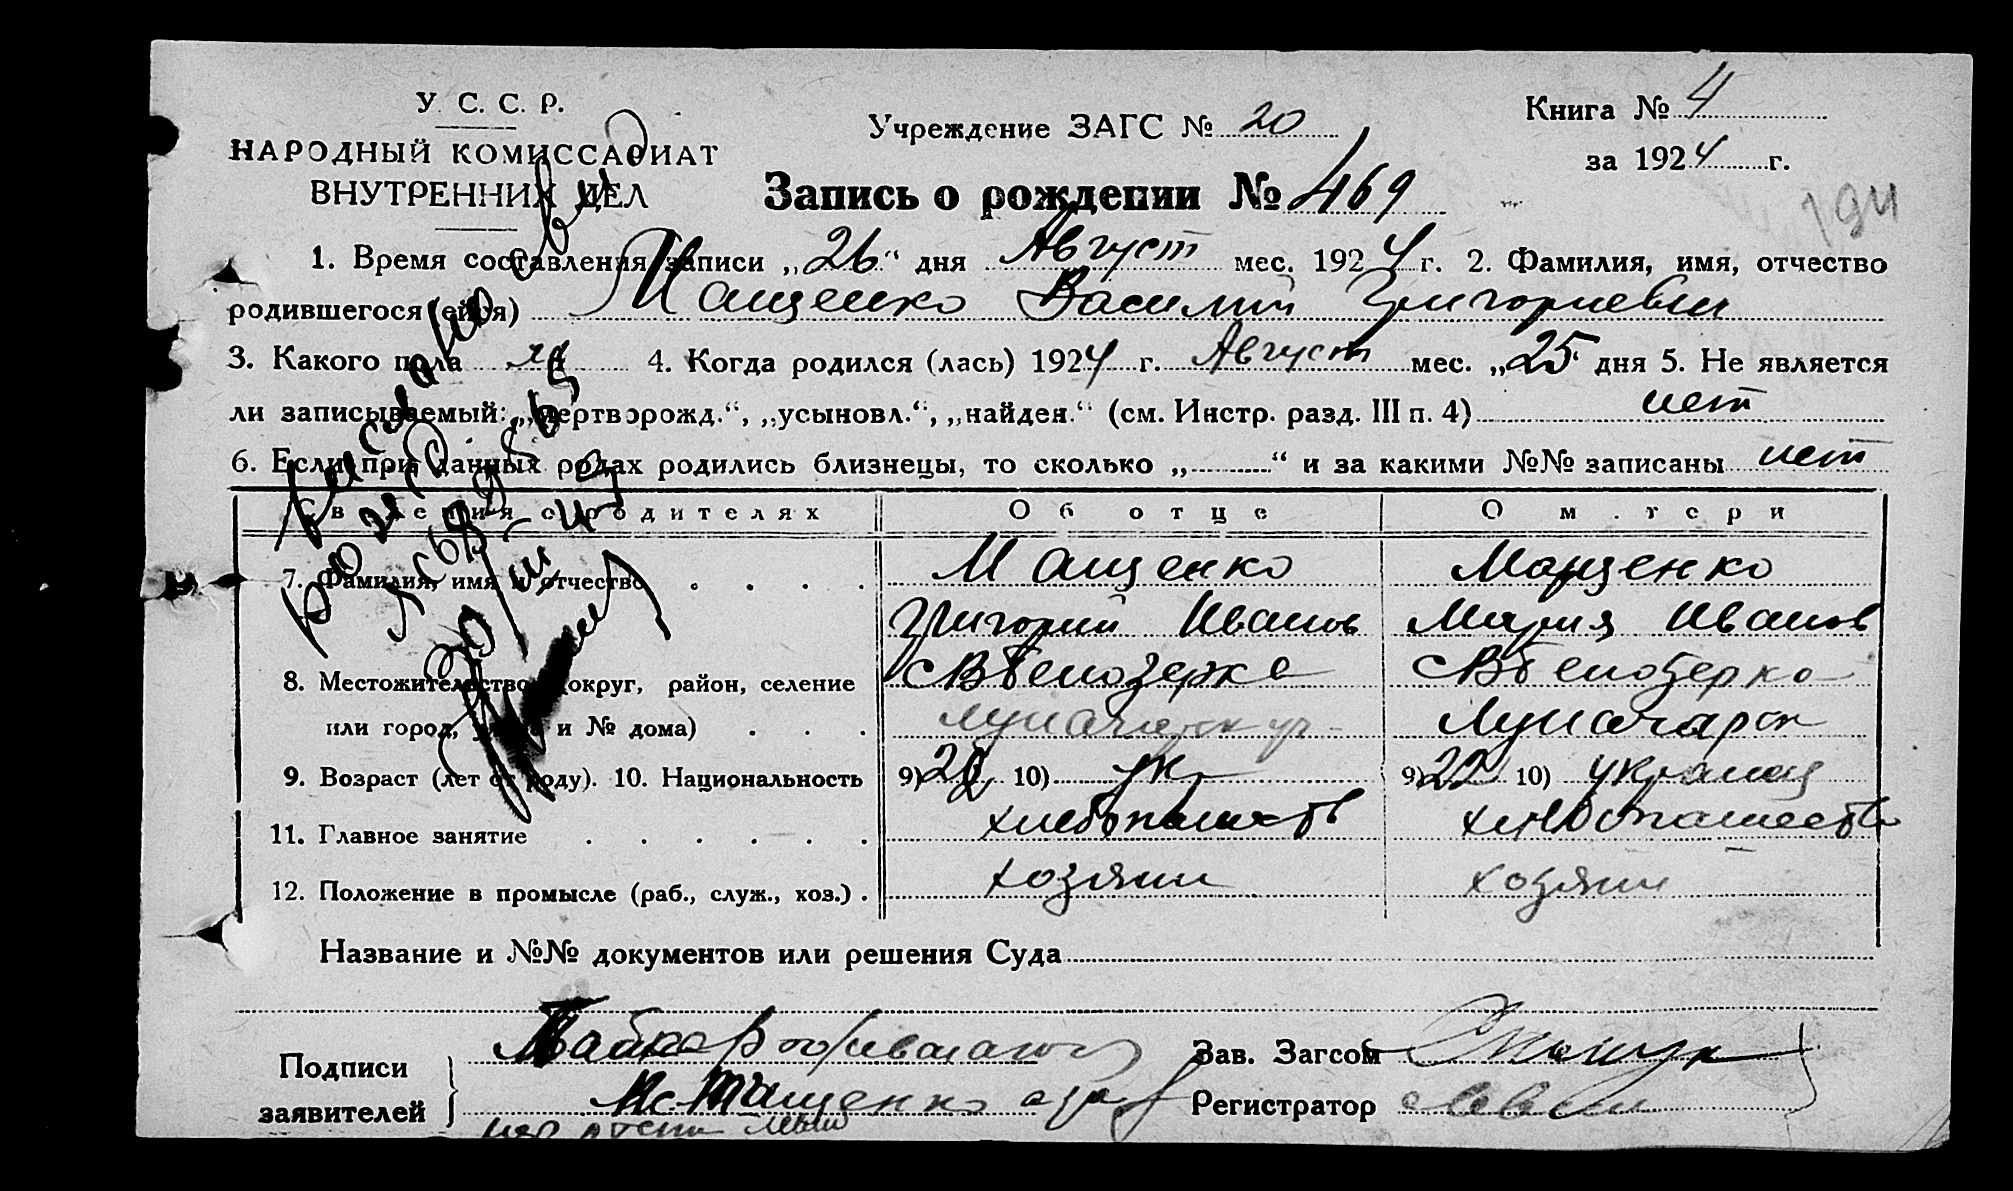 У. С. С. Р.
НАРОДНЫЙ КОМИССАРИАТ
ВНУТРЕННИХ ДЕЛ
Учреждение ЗАГС № 20
Книга № 4
за 1924 г.
Запись о рождении № 469
194
1. Время составления записи „26“ дня Август мес. 1924 г. 2. Фамилия, имя, отчество
родившегося (ейся) Мащенко Василий Григориевич
3. Какого пола 4. Когда родился (лась) 1924 г. Август мес. „25 дня 5. Не является
ли записываемый: „мертворожд.“, „усыновл.“, „найден.“ (см. Инстр. разд. III п. 4) нет
6. Если при данных родах родились близнецы, то сколько „ “ и за какими №№ записаны нет
Сведения о родителях Об отце О матери
7. Фамилия, имя и отчество Мащенко Мащенко
Григорий Иванов Мария Иванов
8. Местожительство (округ, район, селение с Белозерка с Белозерка
или город, улица и № дома) Луначарск
9. Возраст (лет от роду). 10. Национальность 9) 10) укр 9) 22 10)
11. Главное занятие хлебопашеств хлебопашеств
12. Положение в промысле (раб., служ., хоз.) хозяин хозяин
Название и №№ документов или решения Суда
Подписи
заявителей
Мащенко
Зав. Загсом
Регистратор
Выдано свид
рожд